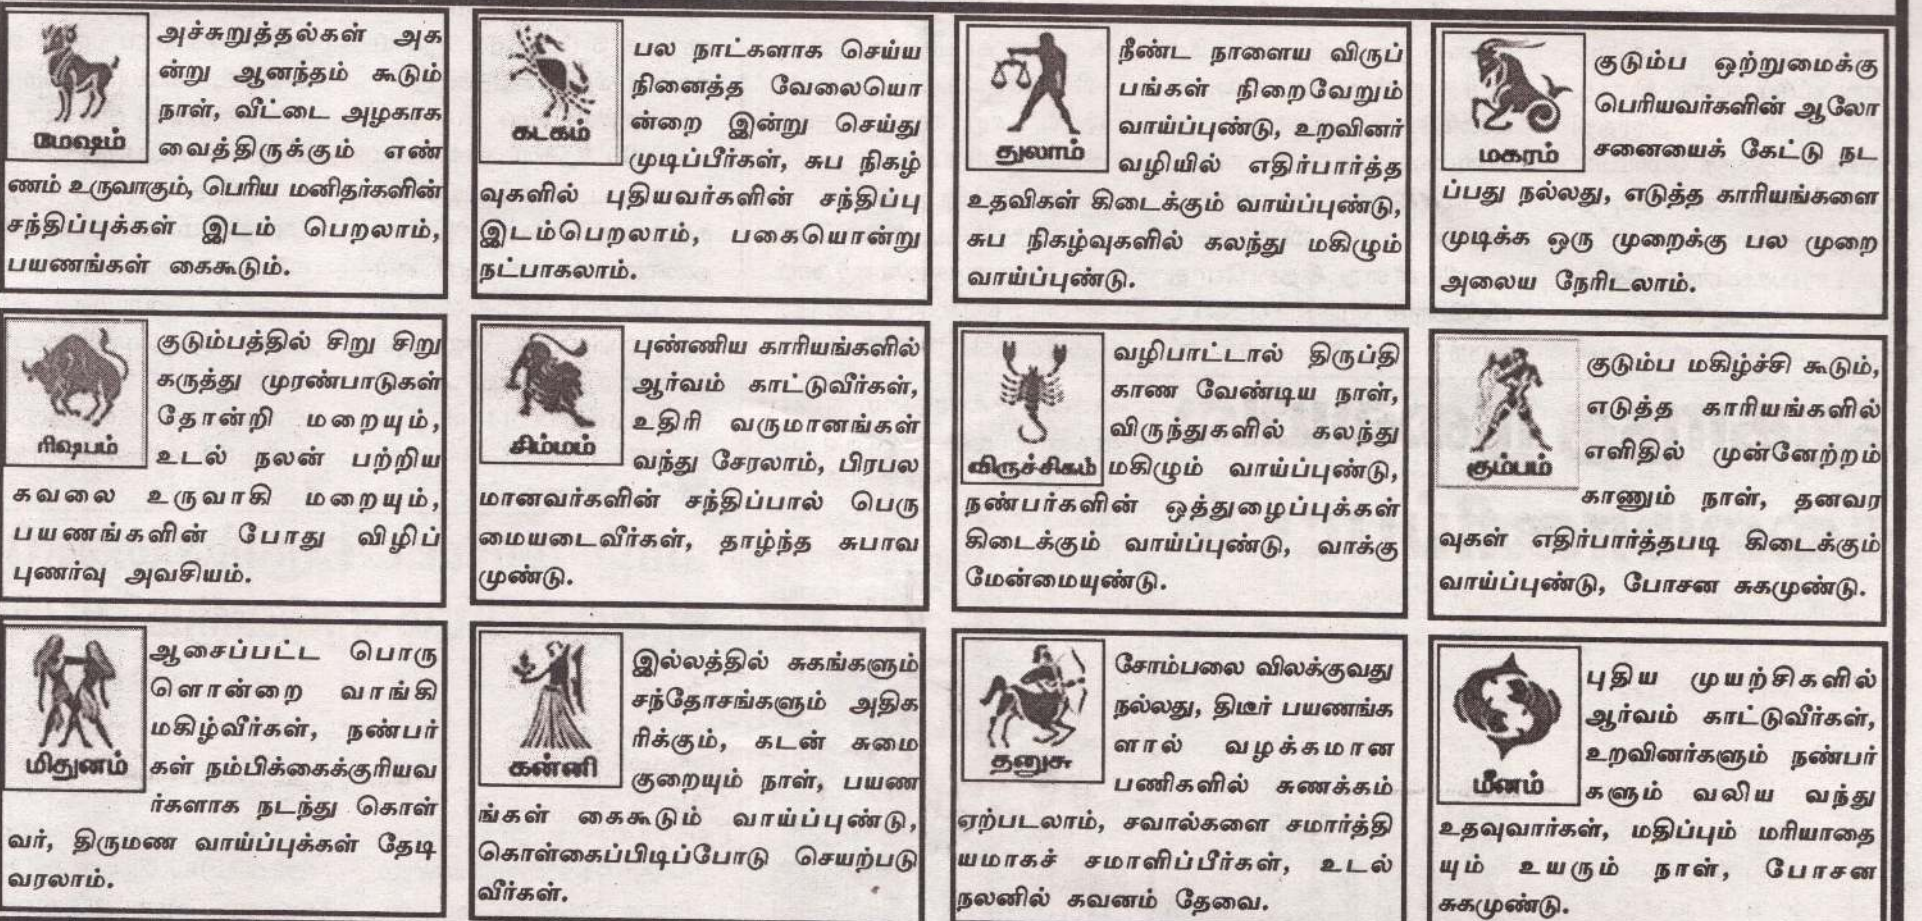 அச்சுறுத்தல்கள் அக
ன்று ஆனந்தம் கூடும்
நாள், வீட்டை அழகாக
வைத்திருக்கும் எண்
மேஷம்
ணம் உருவாகும், பெரிய மனிதர்களின்
சந்திப்புக்கள் இடம் பெறலாம்,
பயணங்கள் கைகூடும்.
குடும்பத்தில் சிறு சிறு
கருத்து முரண்பாடுகள்
தோன்றி மறையும்,
உடல் நலன் பற்றிய
ரிஷபம்
கவலை உருவாகி மறையும்,
பயணங்களின் போது விழிப்
புணர்வு அவசியம்.
ஆசைப்பட்ட பொரு
ளொன்றை வாங்கி
மகிழ்வீர்கள், நண்பர்
கள் நம்பிக்கைக்குரியவ
மிதுனம்
ர்களாக நடந்து கொள்
வர், திருமண வாய்ப்புக்கள் தேடி
வரலாம்.
பல நாட்களாக செய்ய
நினைத்த வேலையொ
ன்றை இன்று செய்து
முடிப்பீர்கள், சுப நிகழ்
கடகம்
வுகளில் புதியவர்களின் சந்திப்பு
இடம்பெறலாம், பகையொன்று
நட்பாகலாம்.
புண்ணிய காரியங்களில்
ஆர்வம் காட்டுவீர்கள்,
உதிரி வருமானங்கள்
வந்து சேரலாம், பிரபல
சிம்மம்
மானவர்களின் சந்திப்பால் பெரு
மையடைவீர்கள், தாழ்ந்த சுபாவ
முண்டு.
இல்லத்தில் சுகங்களும்
சந்தோசங்களும் அதிக
ரிக்கும், கடன் சுமை
குறையும் நாள், பயண
கன்னி
ங்கள் கைகூடும் வாய்ப்புண்டு,
கொள்கைப்பிடிப்போடு செயற்படு
வீர்கள்.
நீண்ட நாளைய விருப்
பங்கள் நிறைவேறும்
வாய்ப்புண்டு, உறவினர்
வழியில் எதிர்பார்த்த
துலாம்
உதவிகள் கிடைக்கும் வாய்ப்புண்டு,
சுப நிகழ்வுகளில் கலந்து மகிழும்
வாய்ப்புண்டு.
வழிபாட்டால் திருப்தி
காண வேண்டிய நாள்,
விருந்துகளில் கலந்து
மகிழும் வாய்ப்புண்டு,
விருச்சிகம்
நண்பர்களின் ஒத்துழைப்புக்கள்
கிடைக்கும் வாய்ப்புண்டு, வாக்கு
மேன்மையுண்டு.
சோம்பலை விலக்குவது
நல்லது, திடீர் பயணங்க
ளால் வழக்கமான
பணிகளில் சுணக்கம்
தனுசு
ஏற்படலாம், சவால்களை சமார்த்தி
யமாகச் சமாளிப்பீர்கள், உடல்
நலனில் கவனம் தேவை.
குடும்ப ஒற்றுமைக்கு
பெரியவர்களின் ஆலோ
சனையைக் கேட்டு நட
மகரம்
ப்பது நல்லது, எடுத்த காரியங்களை
முடிக்க ஒரு முறைக்கு பல முறை
அலைய நேரிடலாம்.
குடும்ப மகிழ்ச்சி கூடும்,
எடுத்த காரியங்களில்
எளிதில் முன்னேற்றம்
காணும் நாள், தனவர
கும்பம்
வுகள் எதிர்பார்த்தபடி கிடைக்கும்
வாய்ப்புண்டு, போசன சுகமுண்டு.
புதிய முயற்சிகளில்
ஆர்வம் காட்டுவீர்கள்,
உறவினர்களும் நண்பர்
களும் வலிய வந்து
மீனம்
உதவுவார்கள், மதிப்பும் மரியாதை
யும் உயரும் நாள், போசன
சுகமுண்டு.